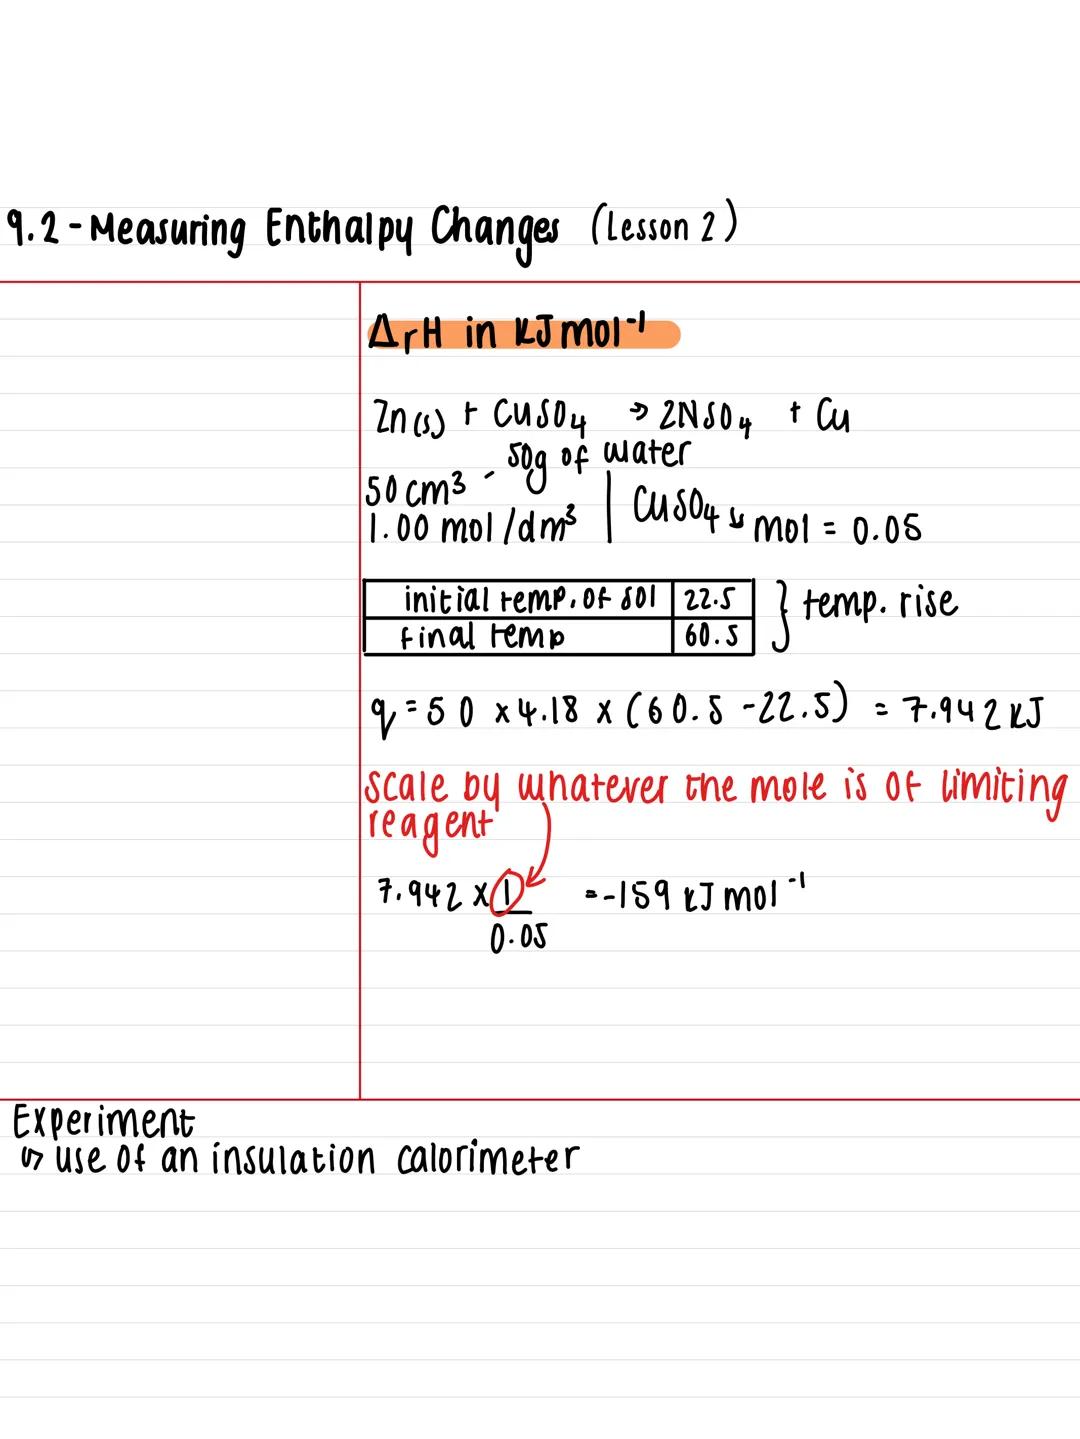 9.2 - Measuring Enthalpy Changes (Lesson 2)
ΔrH in kJ mol⁻¹
Zn(s) + CuSO₄ → 2NSO₄ + Cu
50 cm³ - 50g of water
1.00 mol/dm³ | CuSO₄ ↳ mol = 0.05
initial temp. of sol 22.5 } temp. rise
final temp 60.5
q = 50 × 4.18 × (60.5 - 22.5) = 7.942 kJ
scale by whatever the mole is of limiting
reagent
7.942 × 1/0.05 = -159 kJ mol⁻¹
Experiment
↳ use of an insulation calorimeter